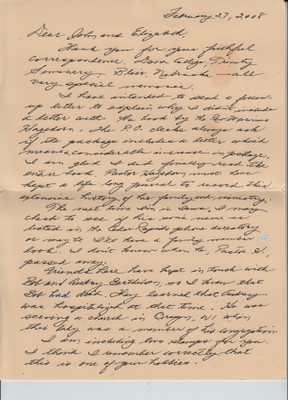 February 27, 2008
Dear John, and Elizabeth,
Thank you for your faithful
correspondence. Dana College, Trinity
Seminary, Blair, Nebraska - all
very special memories.
I have intended to send a follow-
up letter to explain why I didn't include
a letter with the book by the Rev.
Hagedorn. The P.O. clerks always ask
if the package includes a letter which
means considerable increase in postage.
I am glad I did finally read the
entire book. Pastor Hagedorn must have
kept a life-long journal to record this
extensive history of his family and ministry.
The next time I'm in I may
check to see if his son's name is
listed in the Cedar Rapids phone directory
or may be I'll have a phone number
book. I don't know when Pastor H.
passed away.
Friends here have kept in touch with
Bob and Audrey Berthelsen, so I knew that
Bob had died. They learned that Audrey
was hospitalized at that time. He was
serving a church in Oregon, WI when
this lady was a member of his congregation.
I am including some stamps for you.
I think I remember correctly that
this is one of your hobbies.